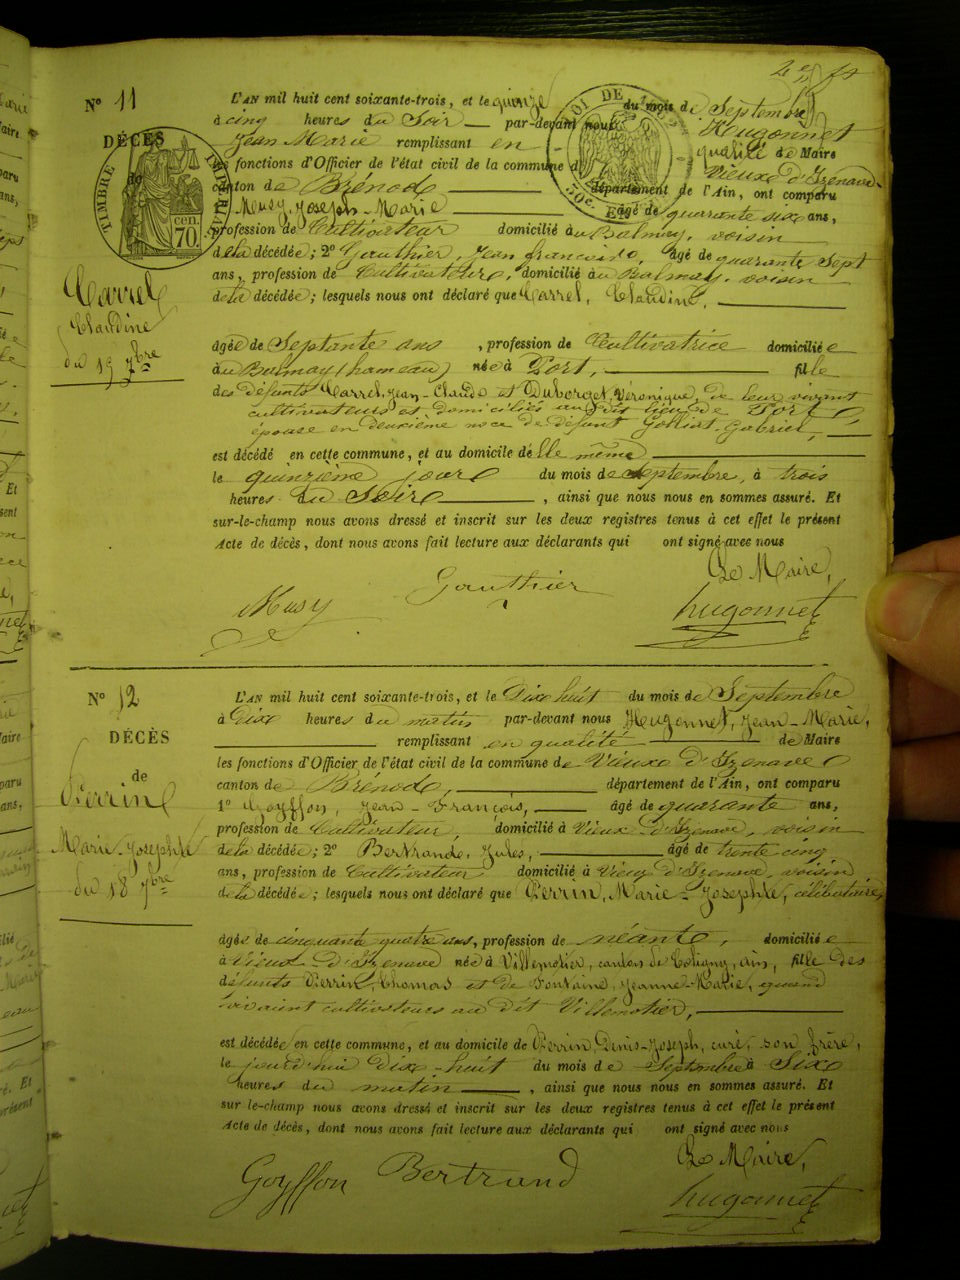 N° 11
DÉCÈS
de
TIMBRE IMPÉRIAL
cen.
70.
Carrel
Claudine
du 15 7bre
L'AN mil huit cent soixante-trois, et le quinze du mois de Septembre
à cinq heures du Soir par-devant nous Hugonnet
Jean Marie remplissant en qualité de Maire
les fonctions d'Officier de l'état civil de la commune d Vieux d'Izenave
canton de Brénod département de l'Ain, ont comparu
Musy, Joseph-Marie âgé de quarante six ans,
profession de Cultivateur domicilié à Balmay, voisin
de la décédée; 2° Gauthier, Jean françois, âgé de quarante Sept
ans, profession de Cultivateur, domicilié à Balmay, voisin
de la décédée; lesquels nous ont déclaré que Carrel, Claudine,
âgée de Septante ans, profession de Cultivatrice domiciliée
au Balmay (hameau) née à Port, fille
des défunts Carrel, Jean-Claude et Duborget, Véronique, de leur vivant
cultivateurs et domiciliés au dit lieu de Port,
épouse en deuxième noce de défunt Golliat, Gabriel,
est décédé en cette commune, et au domicile d'elle même
le quinzième jour du mois de Septembre, à trois
heures du Soir, ainsi que nous nous en sommes assuré. Et
sur-le-champ nous avons dressé et inscrit sur les deux registres tenus à cet effet le présent
Acte de décès, dont nous avons fait lecture aux déclarants qui ont signé avec nous
Le Maire,
Musy Gauthier hugonnet
N° 12
DÉCÈS
de
Perrin
Marie-Josephte
du 18 7bre
L'AN mil huit cent soixante-trois, et le Dix huit du mois de Septembre
à Dix heures du matin par-devant nous Hugonnet, Jean-Marie,
remplissant en qualité de Maire
les fonctions d'Officier de l'état civil de la commune de Vieux d'Izenave
canton de Brénod, département de l'Ain, ont comparu
1° Goyffon, Jean-François, âgé de quarante ans,
profession de Cultivateur, domicilié à Vieux-d'Izenave, voisin
de la décédée; 2° Bertrand, Jules, âgé de trente cinq
ans, profession de Cultivateur domicilié à Vieux d'Izenave, voisin
de la décédée; lesquels nous ont déclaré que Perrin, Marie-Josephte, célibataire,
âgée de cinquante quatre ans, profession de néante, domiciliée
à Vieux-d'Izenave née à Villemotier, canton de Coligny, ain, fille des
défunts Perrin, Thomas et de Fontaine, Jeanne-Marie, quand
vivaient cultivateurs au dit Villemotier,
est décédée en cette commune, et au domicile de Perrin, Denis-Joseph, curé, son frère,
le jourd'hui Dix-huit du mois de Septembre à Six
heures du matin, ainsi que nous nous en sommes assuré. Et
sur le-champ nous avons dressé et inscrit sur les deux registres tenus à cet effet le présent
Acte de décès, dont nous avons fait lecture aux déclarants qui ont signé avec nous
Le Maire,
Goyffon Bertrand hugonnet